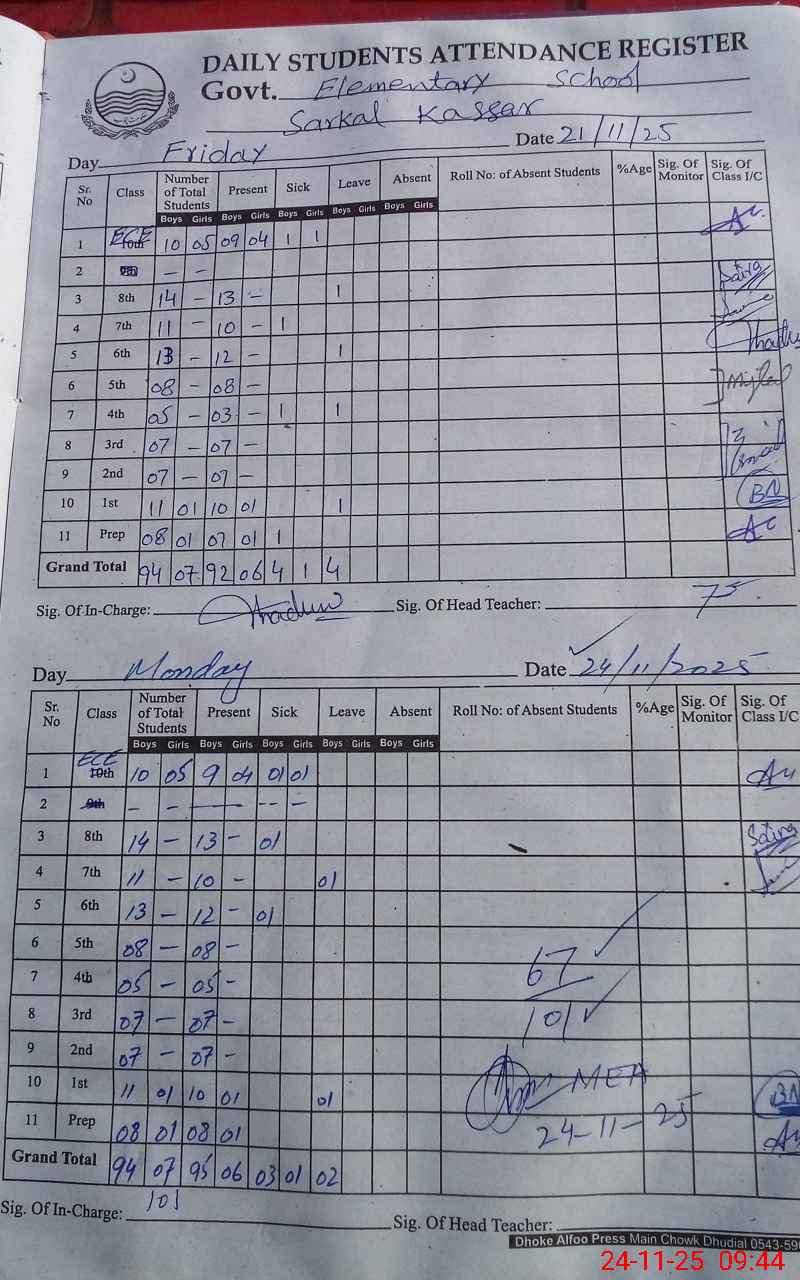 DAILY STUDENTS ATTENDANCE REGISTER
Govt. Elementary School
Sarkal Kassar
Day Friday Date 21/11/25
Sr. No Class Number of Total Students Present Sick Leave Absent Roll No: of Absent Students %Age Sig. Of Monitor Sig. Of Class I/C
Boys Girls Boys Girls Boys Girls Boys Girls Boys Girls
1 ECE 10th 10 05 09 04 1 1
2 9th – –
3 8th 14 – 13 – 1 Saira
4 7th 11 – 10 – 1
5 6th 13 – 12 – 1
6 5th 08 – 08 –
7 4th 05 – 03 – 1 1
8 3rd 07 – 07 –
9 2nd 07 – 07 –
10 1st 11 01 10 01 1 BN
11 Prep 08 01 07 01 1
Grand Total 94 07 92 06 4 1 4
Sig. Of In-Charge: Sig. Of Head Teacher:
Day Monday Date 24/11/2025
Sr. No Class Number of Total Students Present Sick Leave Absent Roll No: of Absent Students %Age Sig. Of Monitor Sig. Of Class I/C
Boys Girls Boys Girls Boys Girls Boys Girls Boys Girls
1 ECE 10th 10 05 9 04 01 01
2 9th – – — -- –
3 8th 14 – 13 – 01 Saira
4 7th 11 – 10 – 01
5 6th 13 – 12 – 01
6 5th 08 – 08 – 67
7 4th 05 – 05 –
8 3rd 07 – 07 – 101
9 2nd 07 – 07 –
10 1st 11 01 10 01 01 MEA BN
11 Prep 08 01 08 01 24-11-25
Grand Total 94 07 95 06 03 01 02
101
Sig. Of In-Charge: Sig. Of Head Teacher:
Dhoke Alfoo Press Main Chowk Dhudial 0543-590
24-11-25 09:44